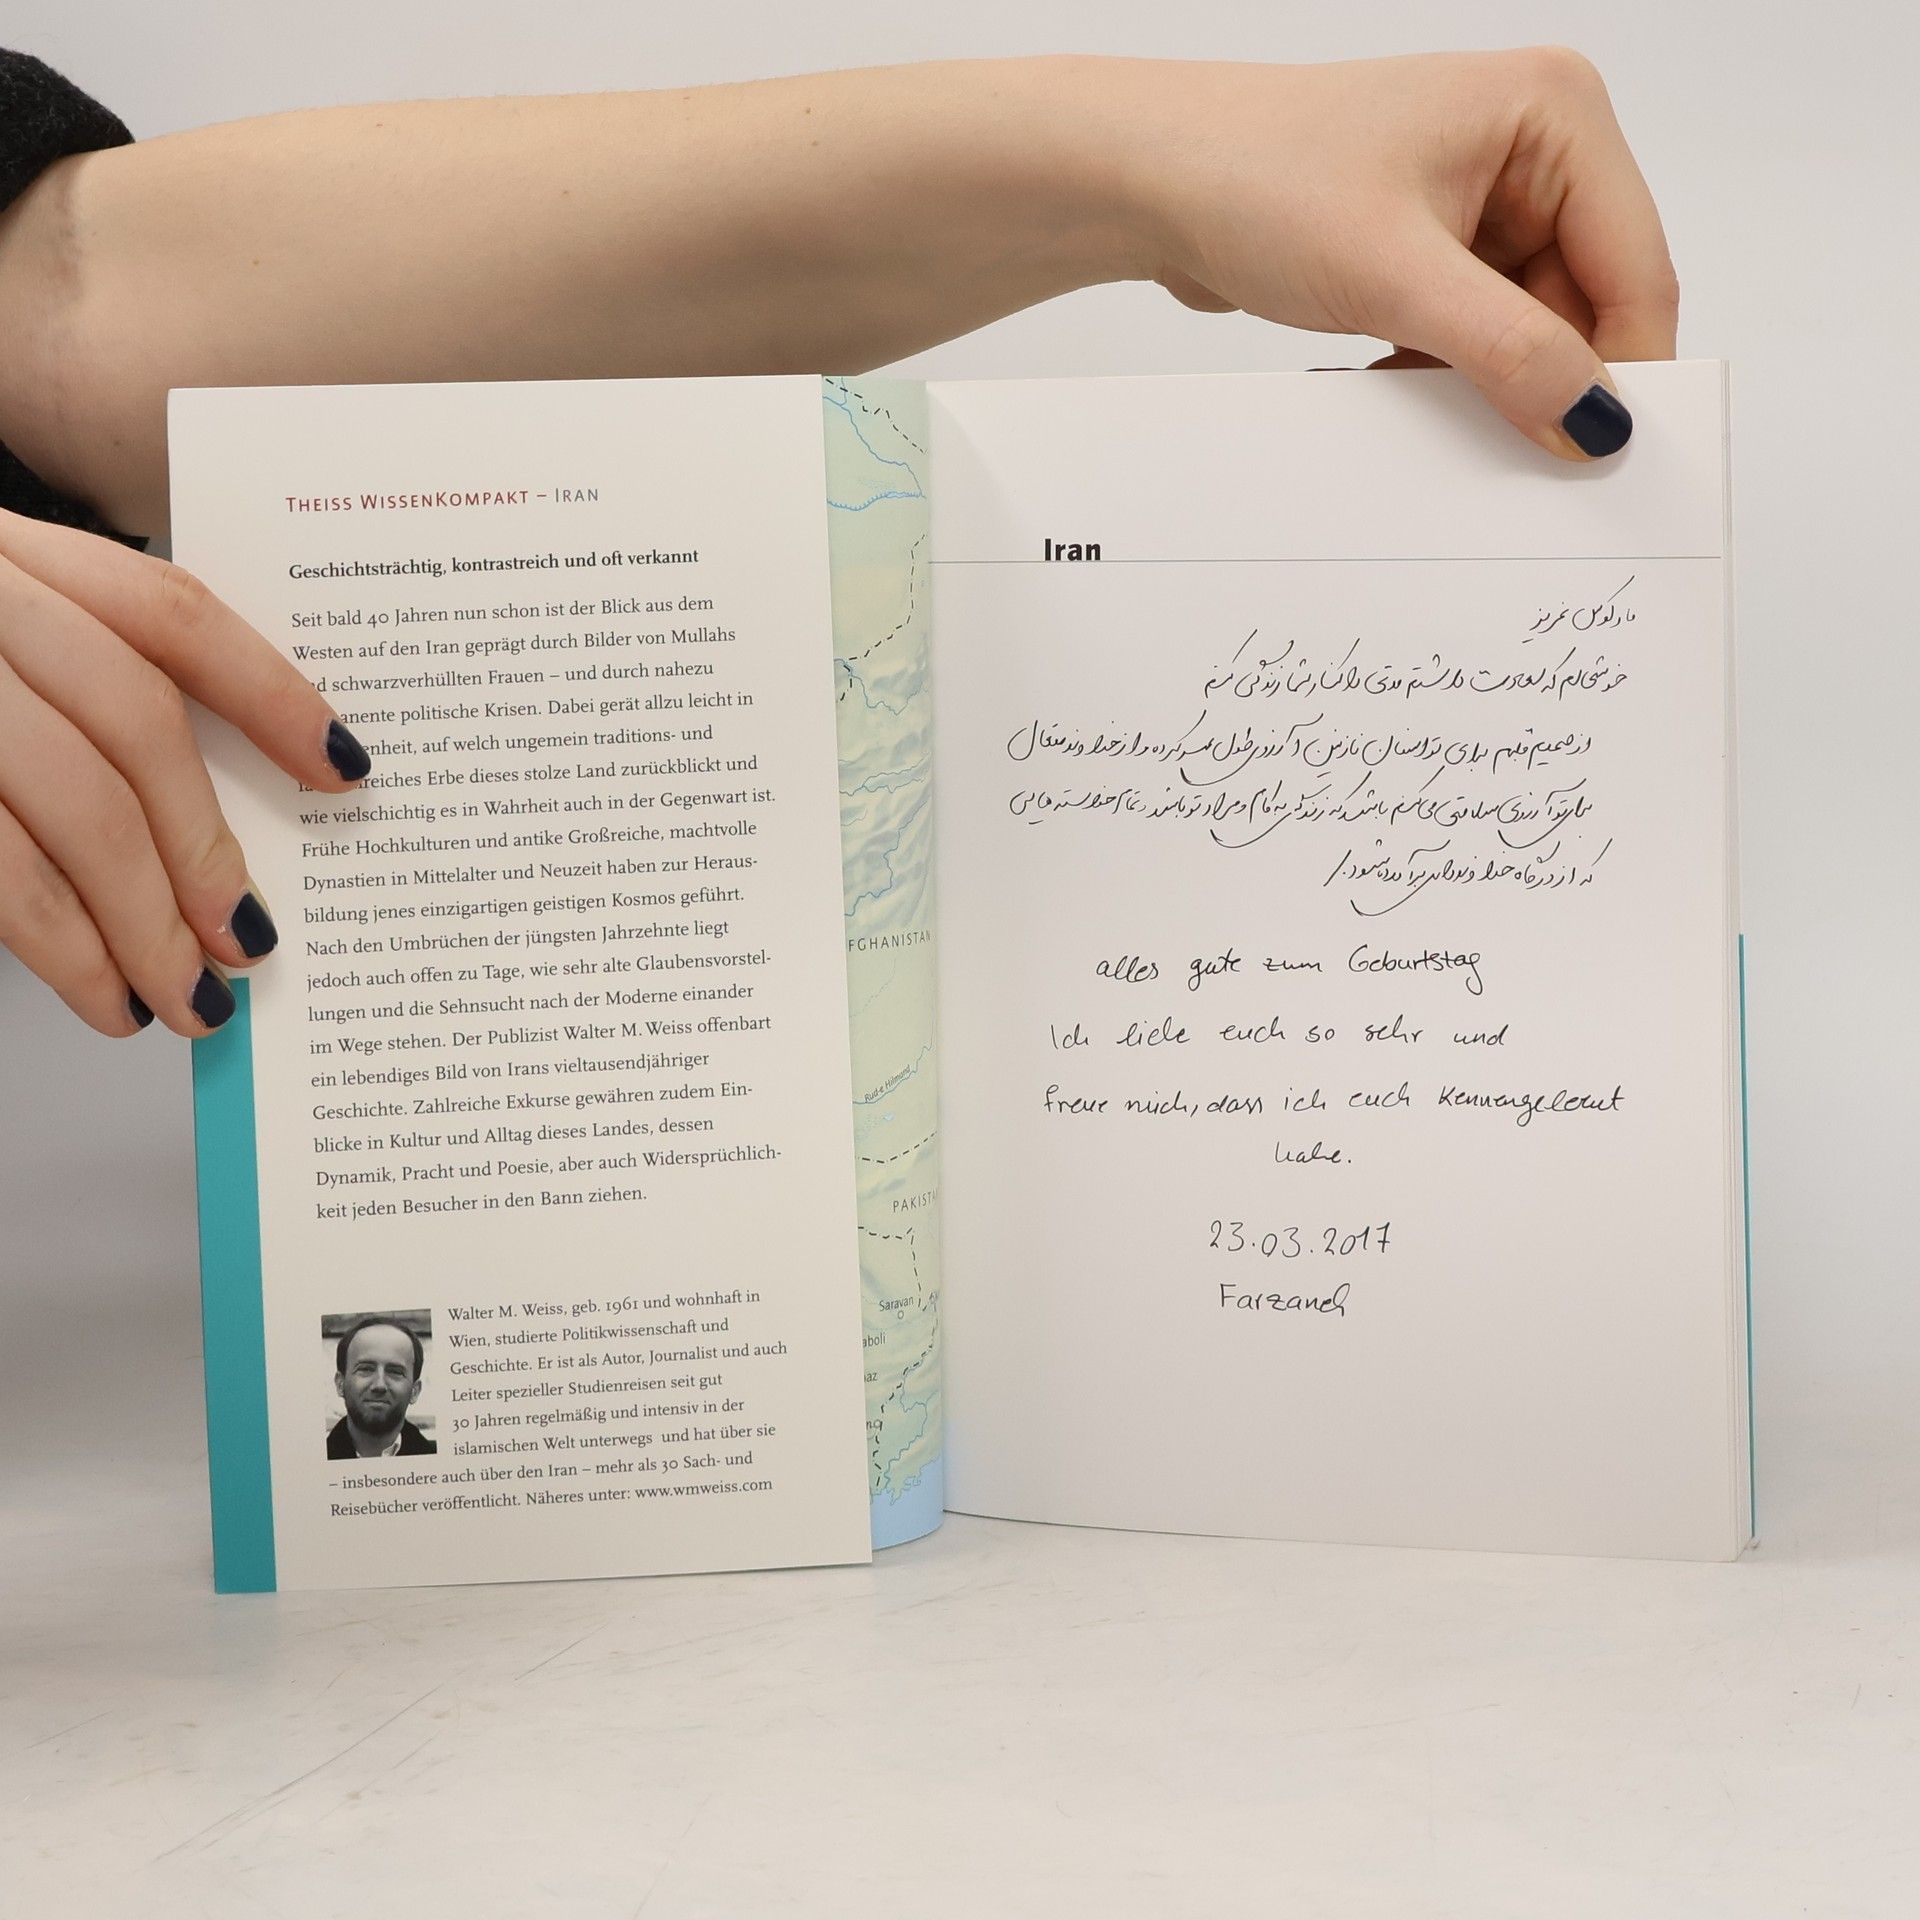 THEISS WISSENKOMPAKT – IRAN
Geschichtsträchtig, kontrastreich und oft verkannt
Seit bald 40 Jahren nun schon ist der Blick aus dem
Westen auf den Iran geprägt durch Bilder von Mullahs
schwarzverhüllten Frauen – und durch nahezu
politische Krisen. Dabei gerät allzu leicht in
auf welch ungemein traditions- und
Erbe dieses stolze Land zurückblickt und
wie vielschichtig es in Wahrheit auch in der Gegenwart ist.
Frühe Hochkulturen und antike Großreiche, machtvolle
Dynastien in Mittelalter und Neuzeit haben zur Heraus-
bildung jenes einzigartigen geistigen Kosmos geführt.
Nach den Umbrüchen der jüngsten Jahrzehnte liegt
jedoch auch offen zu Tage, wie sehr alte Glaubensvorstel-
lungen und die Sehnsucht nach der Moderne einander
im Wege stehen. Der Publizist Walter M. Weiss offenbart
ein lebendiges Bild von Irans vieltausendjähriger
Geschichte. Zahlreiche Exkurse gewähren zudem Ein-
blicke in Kultur und Alltag dieses Landes, dessen
Dynamik, Pracht und Poesie, aber auch Widersprüchlich-
keit jeden Besucher in den Bann ziehen.
Walter M. Weiss, geb. 1961 und wohnhaft in
Wien, studierte Politikwissenschaft und
Geschichte. Er ist als Autor, Journalist und auch
Leiter spezieller Studienreisen seit gut
30 Jahren regelmäßig und intensiv in der
islamischen Welt unterwegs und hat über sie
– insbesondere auch über den Iran – mehr als 30 Sach- und
Reisebücher veröffentlicht. Näheres unter: www.wmweiss.com
FGHANISTAN
Rud-e Hilmand
PAKISTA
Saravan
aboli
az
Iran
عزیز
خوشحالم که سعادت داشتم مدتی را کنار شما زندگی کنم
از صمیم قلبم برای تو انسان نازنین آرزوی طول عمر کرده و از خداوند متعال
برای تو آرزوی سلامتی می‌کنم باشد که زندگی به کام و مراد تو باشد تمام خواسته‌هایی
که از درگاه خداوند داری برآورده شود./
alles gute zum Geburtstag
Ich liebe euch so sehr und
freue mich, dass ich euch Kennengelernt
habe.
23.03.2017
Farzaneh